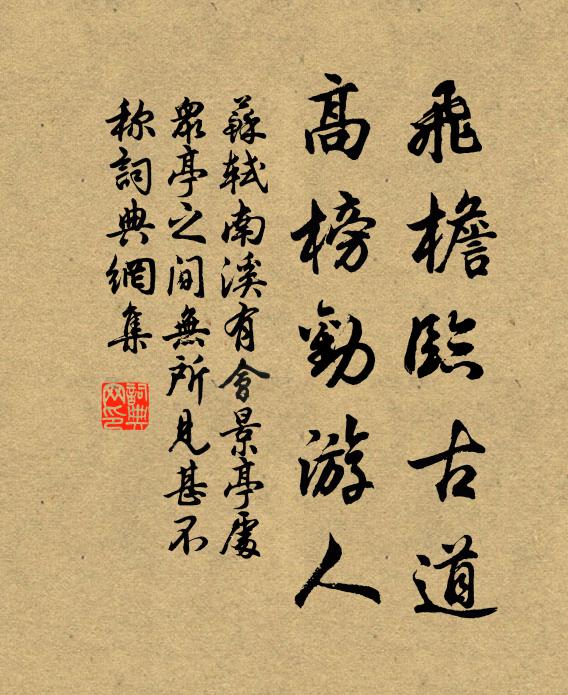 飛檐臨古道
高榜勸游人
蘇軾南溪有會景亭處
眾亭之間無所見甚不
稱詞典網集
詞典
网印